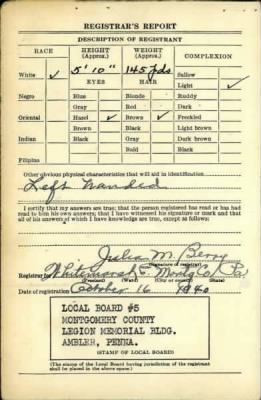 REGISTRAR'S REPORT
DESCRIPTION OF REGISTRANT
RACE HEIGHT (Approx.) WEIGHT (Approx.) COMPLEXION
White ✓ 5' 10" 145 lbs Sallow
EYES HAIR Light ✓
Negro Blue Blonde Ruddy
Gray Red Dark
Oriental Hazel ✓ Brown ✓ Freckled
Brown Black Light brown
Indian Black Gray Dark brown
Bald Black
Filipino
Other obvious physical characteristics that will aid in identification
Left handed
I certify that my answers are true; that the person registered has read or has had
read to him his own answers; that I have witnessed his signature or mark and that
all of his answers of which I have knowledge are true, except as follows:
Julia M. Berry
(Signature of registrar)
Registrar for Whitemarsh E. Montg Co. Pa.
(Precinct) (Ward) (City or county) (State)
Date of registration October 16 1940
LOCAL BOARD #5
MONTGOMERY COUNTY
LEGION MEMORIAL BLDG.
AMBLER, PENNA.
(STAMP OF LOCAL BOARD)
(The stamp of the Local Board having jurisdiction of the registrant
shall be placed in the above space.)